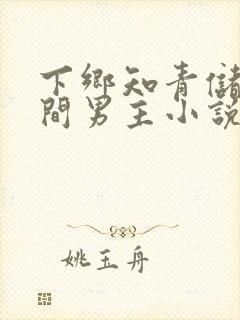 下鄉知青儲
間男主小說
姚玉舟